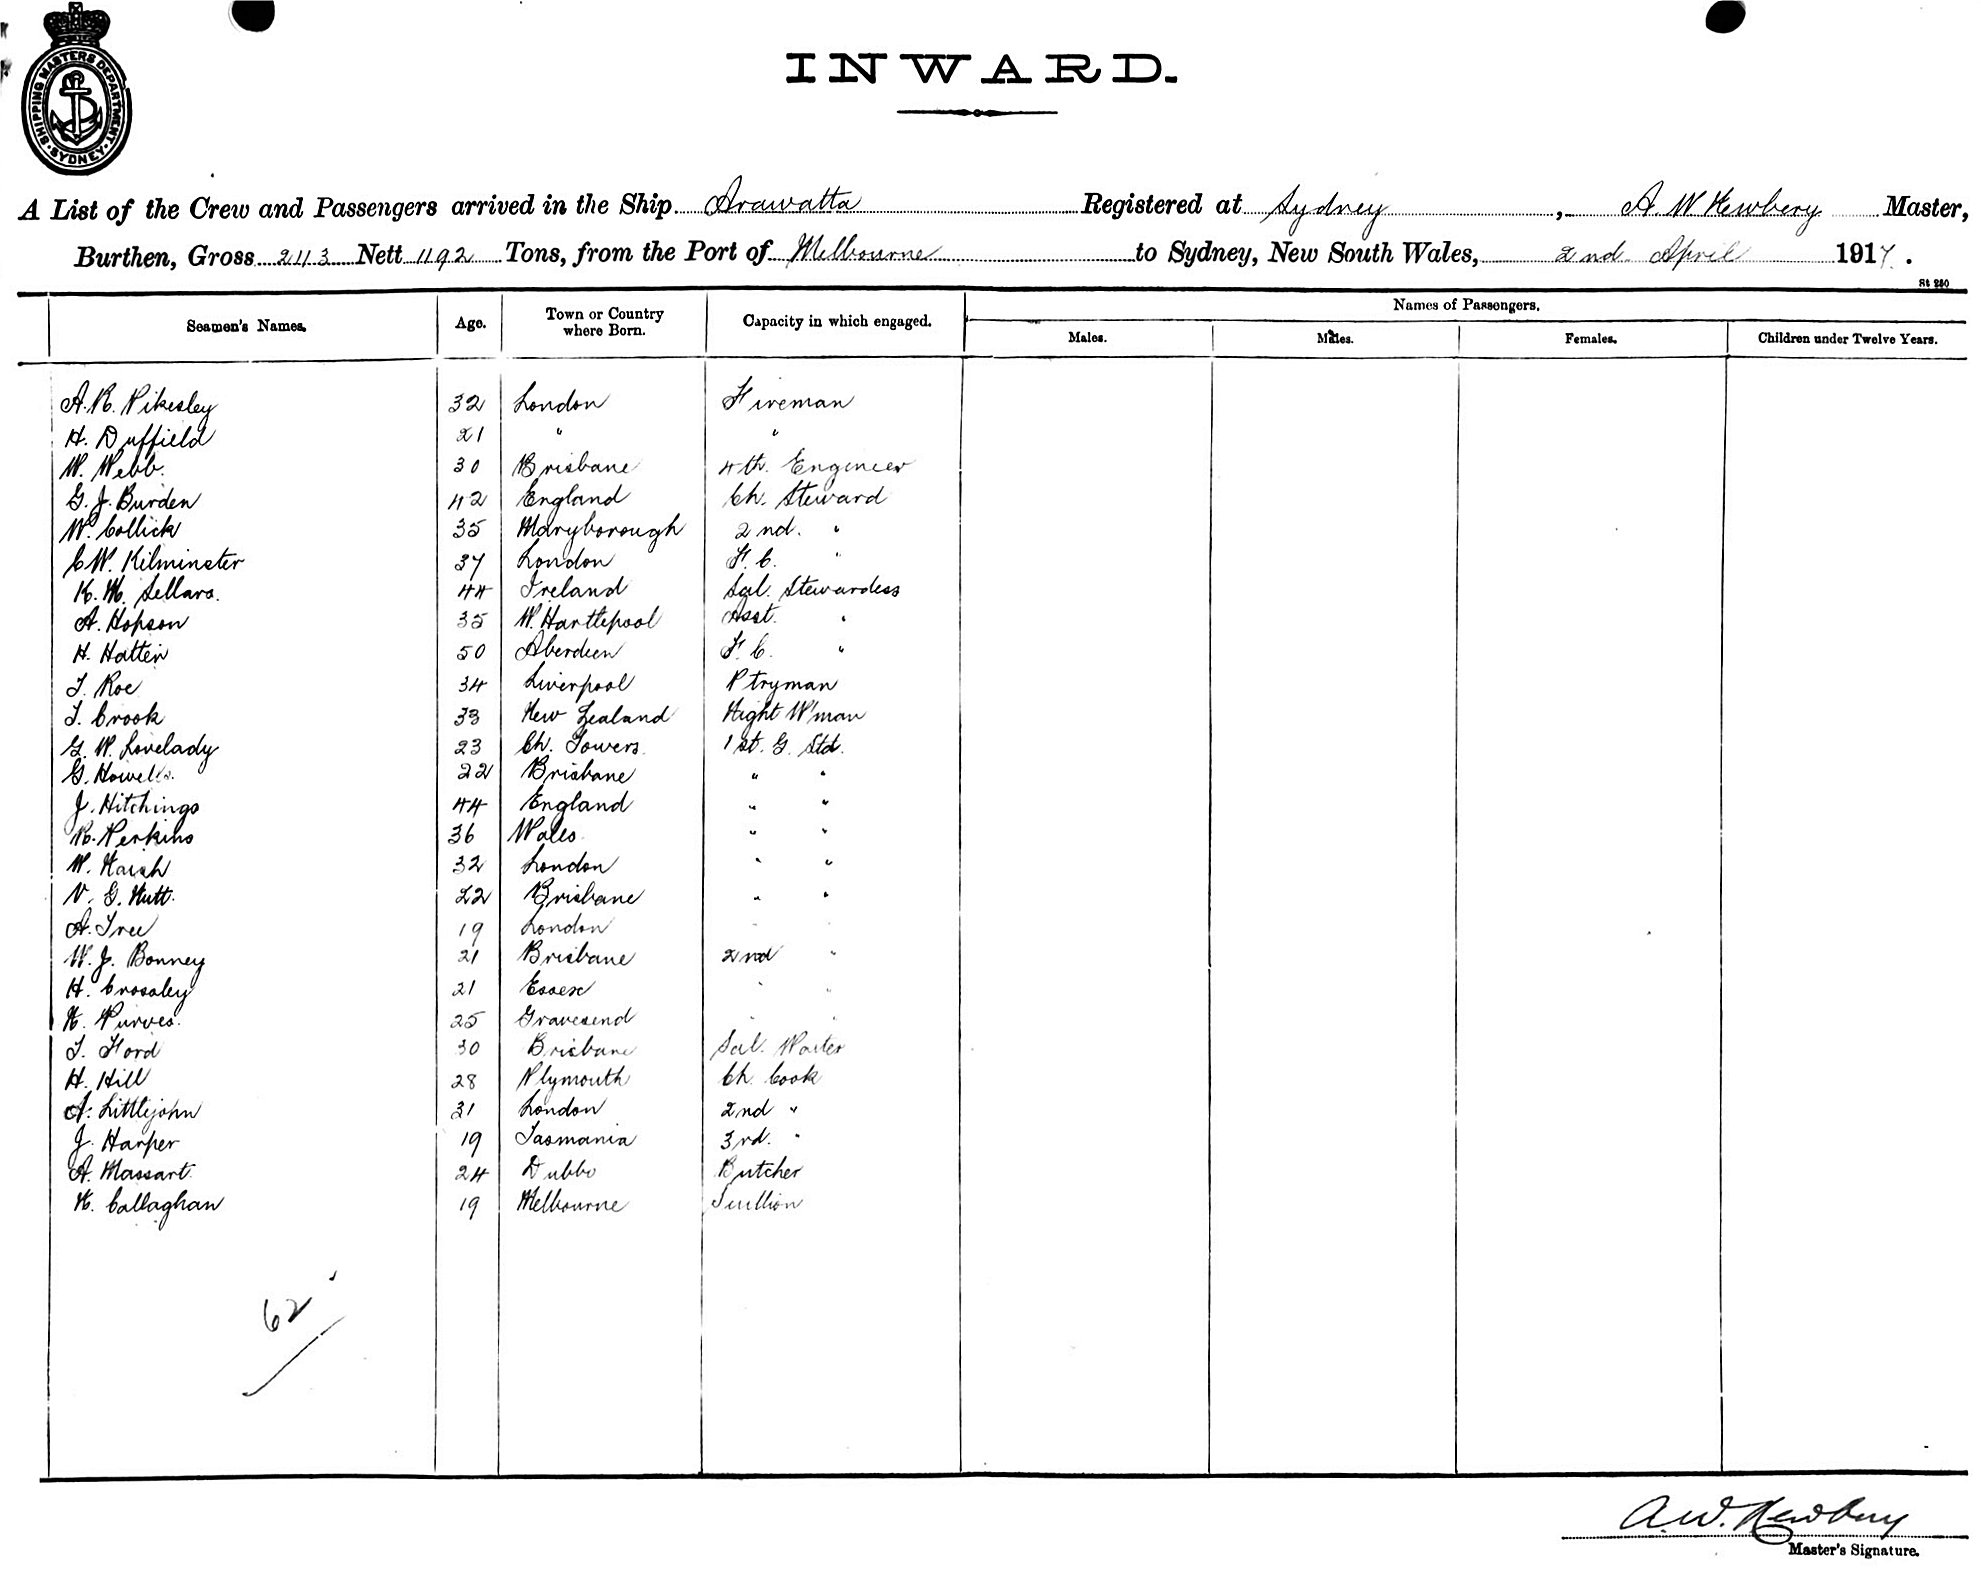 SHIPPING MASTERS DEPARTMENT. SYDNEY.
INWARD.
A List of the Crew and Passengers arrived in the Ship Arawatta Registered at Sydney, A. W Newbery Master,
Burthen, Gross 2113 Nett 1192 Tons, from the Port of Melbourne to Sydney, New South Wales, 2nd April 1917.
St 280
Seamen's Names. Age. Town or Country where Born. Capacity in which engaged. Names of Passengers.
Males. Males. Females. Children under Twelve Years.
A. R. Pikesley 32 London Fireman
H. Duffield 21 " "
W. Webb. 30 Brisbane 4th. Engineer
G. J. Burden 42 England Ch. Steward
W. Collick 35 Maryborough 2nd. "
C W. Kilminster 37 London F. C. "
K. M. Sellars. 44 Ireland Sal. Stewardess
A. Hopson 35 W. Hartlepool Asst. "
H. Hatten 50 Aberdeen F. C. "
T. Roe 34 Liverpool Ptryman
T. Crook 33 New Zealand Night W'man
G. W. Lovelady 23 Ch. Towers. 1st. G. Std.
G. Howells. 22 Brisbane " "
J. Hitchings 44 England " "
R. Perkins 36 Wales. " "
W. Naish 32 London " "
V. G. Nutt. 22 Brisbane " "
A. Tree 19 London " "
W. J. Bonney 21 Brisbane 2nd "
H. Crossley 21 Essex " "
N. Purves. 25 Gravesend " "
T. Ford 30 Brisbane Sal. Waiter
H. Hill 28 Plymouth Ch. Cook
A. Littlejohn 31 London 2nd "
J. Harper 19 Tasmania 3rd. "
A. Massart. 24 Dubbo Butcher
N. Callaghan 19 Melbourne Scullion
62
A. W. Newbery
Master's Signature.